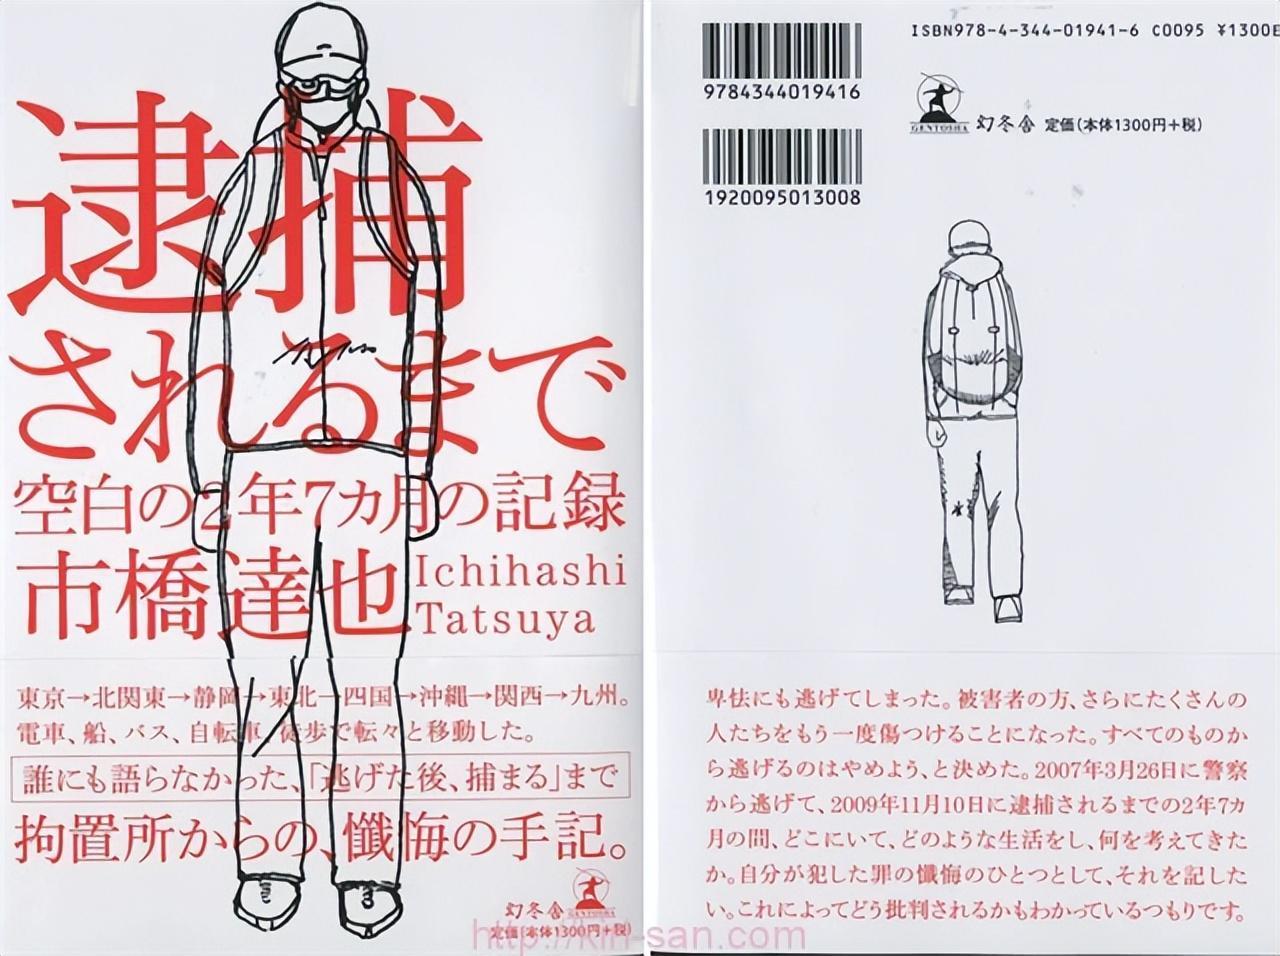 逮捕
されるまで
空白の2年7カ月の記録
市橋達也
Ichihashi
Tatsuya
東京→北関東→静岡→東北→四国→沖縄→関西→九州。
電車、船、バス、自転車、徒歩で転々と移動した。
誰にも語らなかった、「逃げた後、捕まる」まで
拘置所からの、懺悔の手記。
幻冬舎
GENTOSHA
定価(本体1300円+税)
9784344019416
1920095013008
ISBN978-4-344-01941-6 C0095 ¥1300E
GENTOSHA
幻冬舎 定価(本体1300円+税)
卑怯にも逃げてしまった。被害者の方、さらにたくさんの
人たちをもう一度傷つけることになった。すべてのものか
ら逃げるのはやめよう、と決めた。2007年3月26日に警察
から逃げて、2009年11月10日に逮捕されるまでの2年7カ
月の間、どこにいて、どのような生活をし、何を考えてきた
か。自分が犯した罪の懺悔のひとつとして、それを記した
い。これによってどう批判されるかもわかっているつもりです。
http://kin-san.com